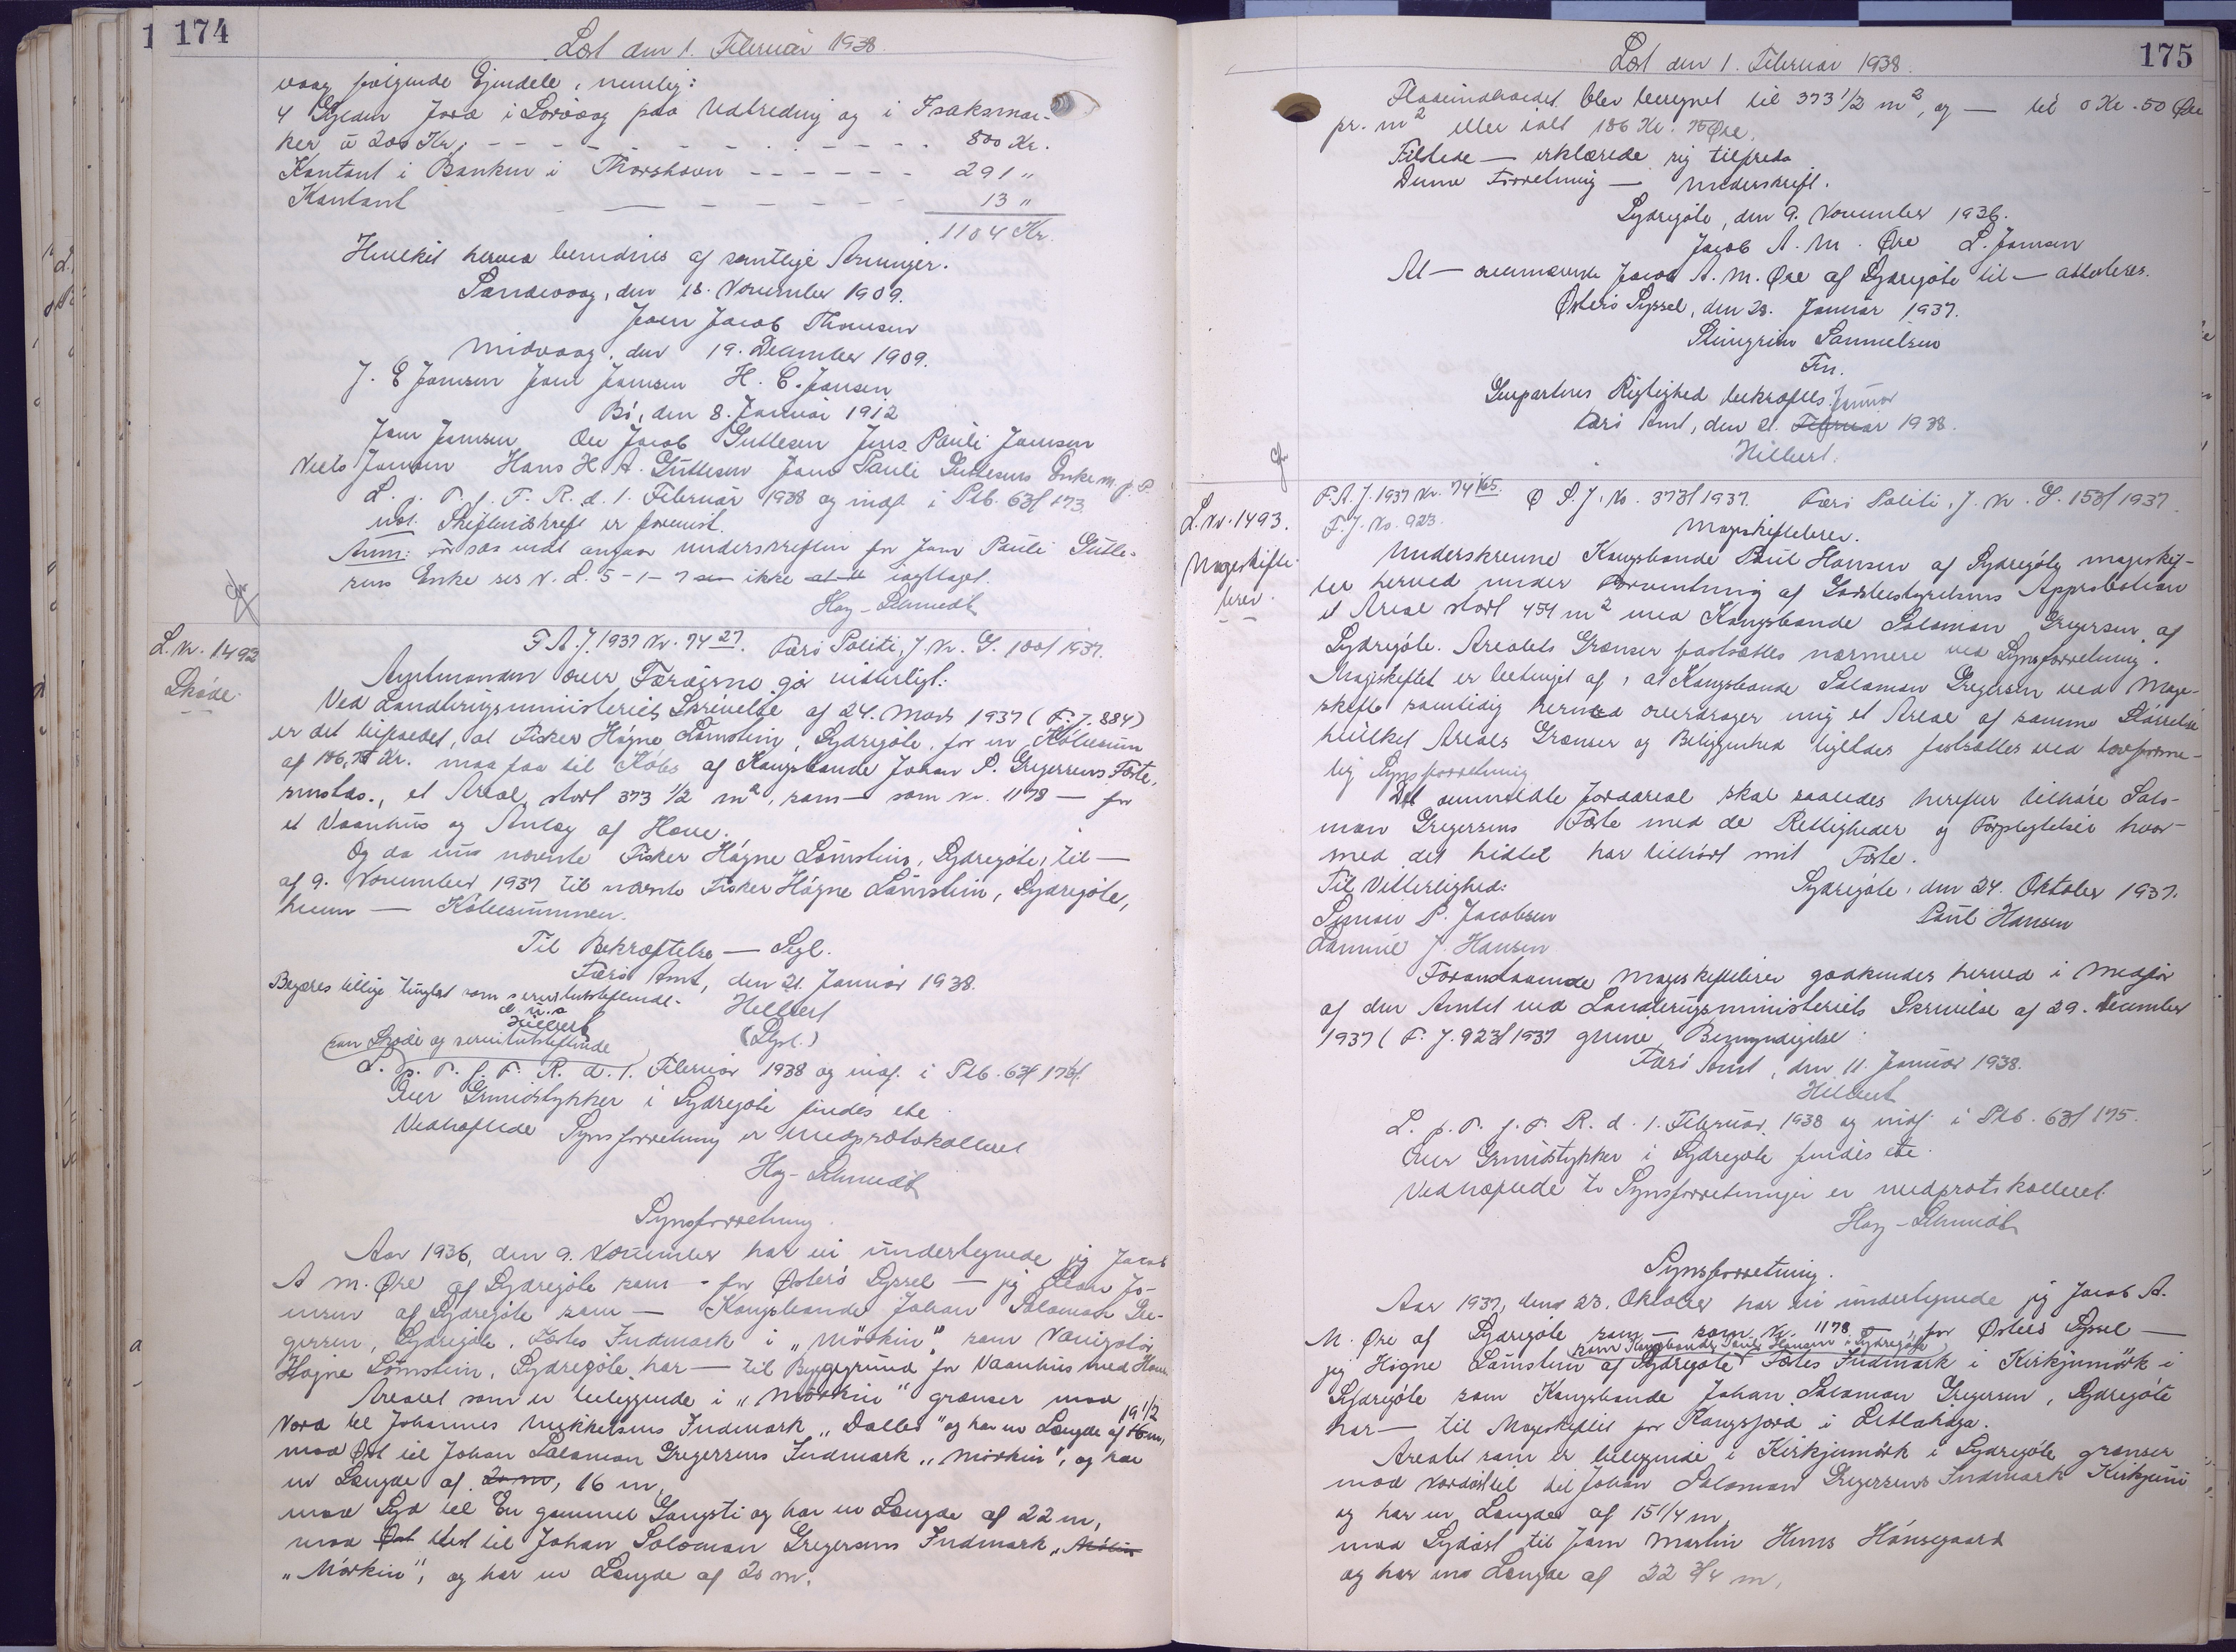 174
Læst den 1. Februar 1938.
vaag følgende Ejendele, nemlig:
4 Gylden Jord i Sørvaag paa Udbredning og i Isaksmar-
ker à 200 Kr., - - - - - - - - - 800 Kr.
Kontant i Banken i Thorshavn - - - - - - 291 "
Kontant - - - - - - 13 "
1104 Kr.
Hvilket herved bevidnes af samtlige Arvinger.
Sandevaag, den 18. November 1909.
Joen Jacob Thomsen
Midvaag, den 19. December 1909.
J. E Joensen Joen Joensen H. C. Jensen
Bö, den 8. Januar 1912
Joen Joensen Ole Jacob Guttesen Jens Pauli Joensen
Niels Joensen Hans H. A. Guttesen Joen Pauli Guttesens Enke m. p. P.
L. p. T. f. F. R. d. 1. Februar 1938 og indf. i Ptb. 63f 173
not. Skifteudskrift er forevist.
Anm: For saa vidt angaar underskriften for Joen Pauli Gutte-
sens Enke ses N. L. 5-1-7 ikke iagttaget.
Hoy-Schmidt
L. Nr. 1492
Skøde.
F A. J. 1937 Nr. 74 27. Færø Politi, J. Nr. G. 100f 1937.
Amtmanden over Færøerne gør vitterligt:
Ved Landbrugsministeriets Skrivelse af 24. Marts 1937 (F. J. 884)
er det tilstaedet, at Fisker Høgne Lamstein, Sydregöte, for en Købesum
af 186,75 Kr. maa faa til Købs af Kongsbonde Johan S. Gregersens Fæste,
smstds., et Areal, stort 373 1/2 m², som — som Nr. 1178 — for
et Vaanhus og Anlæg af Have.
Og da nu nævnte Fisker Høgne Lamstein, Sydregöte, til —
af 9. November 1937 til nævnte Fisker Høgne Lamstein, Sydregöte,
hvem — Købesummen.
Til Bekræftelse — Segl.
Færø Amt, den 21. Januar 1938.
Begæres tillige tinglæst som servitutstiftende. Hilbert
d. u. s (Segl.)
Hilbert
som Skøde og servitutstiftende
L. p. T. f. F. R. d. 1. Februar 1938 og indf. i Ptb. 63f 174f.
Over Grundstykker i Sydregöte findes ete.
Vedhæftede Synsforretning er medprotokolleret
Hoy-Schmidt
Synsforretning.
Aar 1936, den 9. November har vi undertegnede jeg Jacob
A M. Øre af Sydregöte som - for Østerø Syssel — jeg Jo-
ensen af Sydregöte som — Kongsbonde Johan Salomon Gre-
gersen, Sydregöte, Fæstes Indmark i „Mörkin", som Navigatör
Høgne Lamstein, Sydregöte har — til Byggegrund for Vaanhus med Have.
Arealet som er beliggende i „Mörkin" grænser mod
Nord til Johannes Mikkelsens Indmark „Dalleö" og har en Længde af 19 1/2 m,
mod Øst til Johan Salomon Gregersens Indmark „Mörkin", og har
en Længde af 20 m, 16 m,
mod Syd til En gammel Gangsti og har en Længde af 22 m,
mod Øst Vest til Johan Salomon Gregersens Indmark
„Mörkin", og har en Længde af 20 m.
175
Læst den 1. Februar 1938.
Fladeindholdet blev beregnet til 373 1/2 m², og — til 0 Kr. 50 Øre
pr. m² eller ialt 186 Kr. 75 Øre.
Tilstede — erklærede sig tilfreds
Denne Forretning — underskrift.
Sydregöte, den 9. November 1936.
Jacob A. M. Øre L. Joensen
At — ovennævnte Jacob A. M. Øre af Sydregöte til — attesteres.
Østerø Syssel, den 28. Januar 1937.
Steingrim Samuelsen
Fm.
Genpartens Rigtighed bekræftes. Januar
Færø Amt, den 21. Februar 1938.
Hilbert.
L. Nr. 1493.
Mageskifte-
brev.
F. A. J. 1937 Nr. 74 165. Ø S. J. No. 373f 1937. Færø Politi, J. Nr. G. 153f 1937.
F. J. No. 923.
Mageskiftebrev.
Underskrevne Kongsbonde Poul Hansen af Sydregöte mageskif-
ter herved under Forventning af Jordbestyrelsens Approbation
et Areal stort 454 m² med Kongsbonde Salomon Gregersen, af
Sydregöte. Arealets Grænser fastsættes nærmere ved Synsforretning.
Mageskiftet er betinget af, at Kongsbonde Salomon Gregersen ved Mage-
skifte samtidig hermed overdrager mig et Areal af samme Størrelse
hvilket Areals Grænser og Beliggenhed ligeledes fastsættes ved lovforme-
lig Synsforretning
Det ommeldte Jordareal skal saaledes herefter tilhøre Salo-
mon Gregersens Fæste med de Rettigheder og Forpligtelser hvor-
med det hidtil har tilhørt mit Fæste.
Til Vitterlighed: Sydregöte, den 24. Oktober 1937.
Simon P. Jacobsen Poul Hansen
Samuel J. Hansen
Foranstaaende Mageskiftebrev godkendes herved i Medfør
af den Amtet ved Landbrugsministeriets Skrivelse af 29. December
1937 (F. J. 923f 1937 givne Bemyndigelse
Færö Amt, den 11. Januar 1938.
Hilbert
L. p. T. f. F. R. d. 1. Februar 1938 og indf. i Ptb. 63f 175.
Over Grundstykker i Sydregöte findes ete.
Vedhæftede to Synsforretninger er medprotokolleret.
Hoy-Schmidt
Synsforretning.
Aar 1937, den 23. Oktober har vi undertegnede jeg Jacob A.
M. Øre af Sydregöte som — som Nr. 1178 —, for Østerø Syssel —
som Kongsbonde Poul Hansen i Sydregöte
jeg Høgne Lamstein af Sydregöte Fæstes Indmark i Kirkjumörk i
Sydregöte som Kongsbonde Johan Salomon Gregersen, Sydregöte
har — til Mageskiftet for Kongsjord i Litlahaga.
Arealet som er beliggende i Kirkjumörk i Sydregöte grænser
mod Nordöst til Johan Salomon Gregersens Indmark
og har en Længde af 15 1/4 m,
mod Sydöst til Joen Martin Hansegaard
og har en Længde af 22 3/4 m,